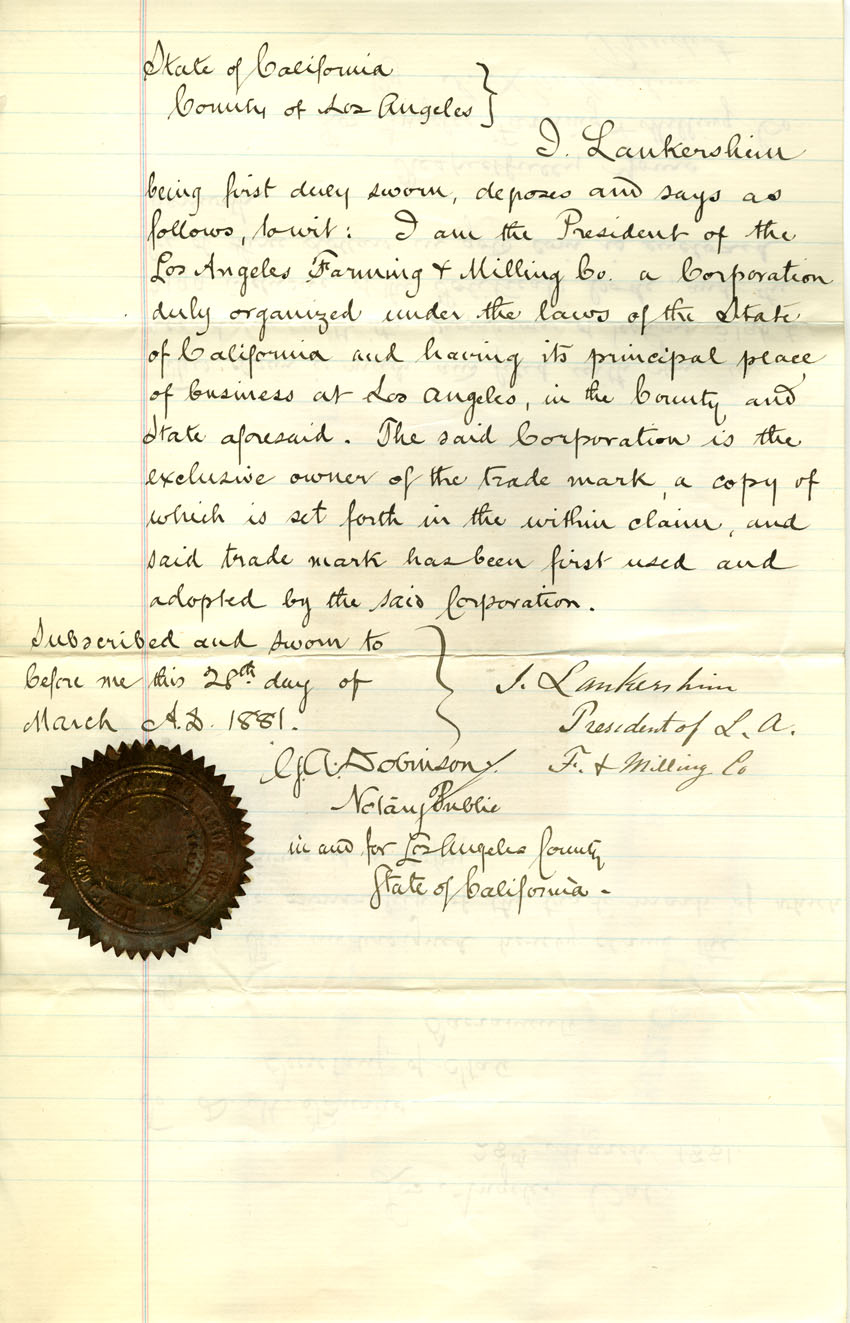 State of California
County of Los Angeles
I. Lankershim
being first duly sworn, deposes and says as
follows, to wit: I am the President of the
Los Angeles Farming & Milling Co. a Corporation
duly organized under the laws of the State
of California and having its principal place
of business at Los Angeles, in the County and
State aforesaid. The said Corporation is the
exclusive owner of the trade mark, a copy of
which is set forth in the within claim, and
said trade mark has been first used and
adopted by the said Corporation.
Subscribed and sworn to
before me this 28th day of
March A.D. 1881.
I. Lankershim
President of L. A.
F. & Milling Co
G. A. Dobinson
Notary Public
in and for Los Angeles County
State of California -